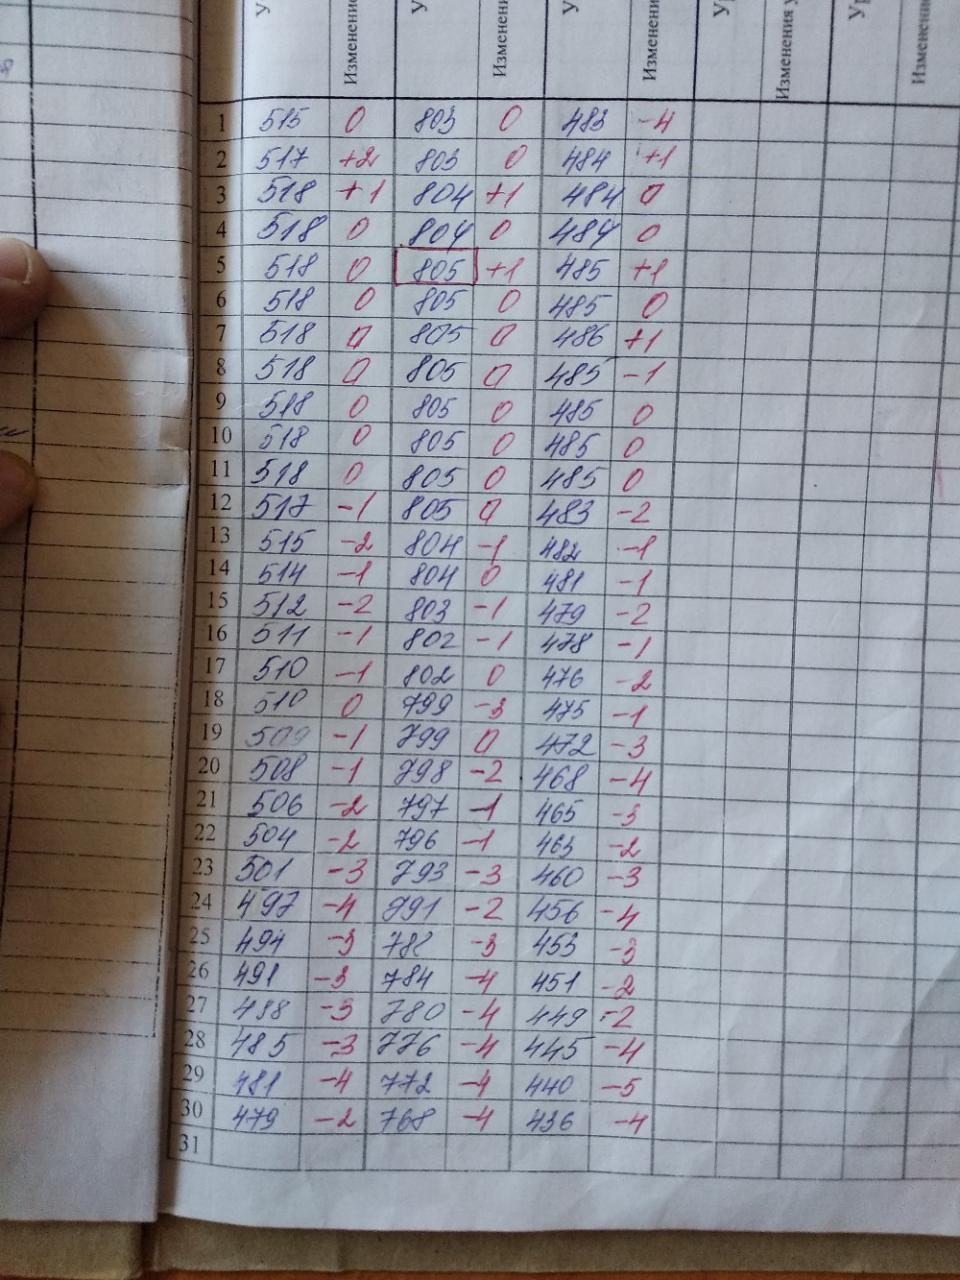 У Изменени У Изменени У Изменени Ур Изменения у Ур Изменени
1 515 0 803 0 483 -4
2 517 +2 803 0 484 +1
3 518 +1 804 +1 484 0
4 518 0 804 0 484 0
5 518 0 805 +1 485 +1
6 518 0 805 0 485 0
7 518 0 805 0 486 +1
8 518 0 805 0 485 -1
9 518 0 805 0 485 0
10 518 0 805 0 485 0
11 518 0 805 0 485 0
12 517 -1 805 0 483 -2
13 515 -2 804 -1 482 -1
14 514 -1 804 0 481 -1
15 512 -2 803 -1 479 -2
16 511 -1 802 -1 478 -1
17 510 -1 802 0 476 -2
18 510 0 799 -3 475 -1
19 509 -1 799 0 472 -3
20 508 -1 798 -2 468 -4
21 506 -2 797 -1 465 -3
22 504 -2 796 -1 463 -2
23 501 -3 793 -3 460 -3
24 497 -4 791 -2 456 -4
25 494 -3 788 -3 453 -3
26 491 -3 784 -4 451 -2
27 488 -3 780 -4 449 -2
28 485 -3 776 -4 445 -4
29 481 -4 772 -4 440 -5
30 479 -2 768 -4 436 -4
31